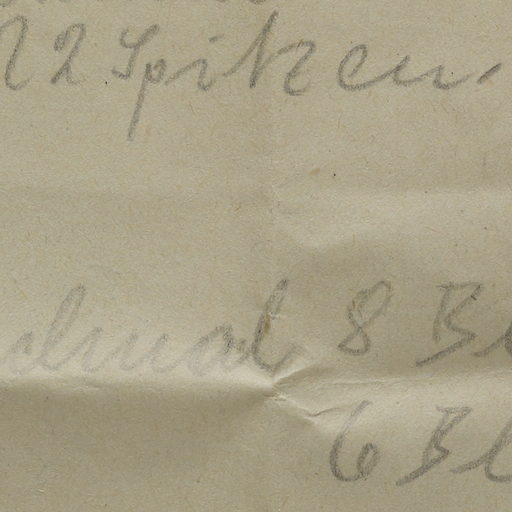 22 Spitzen.
dmal 8 Bl
6 Bl